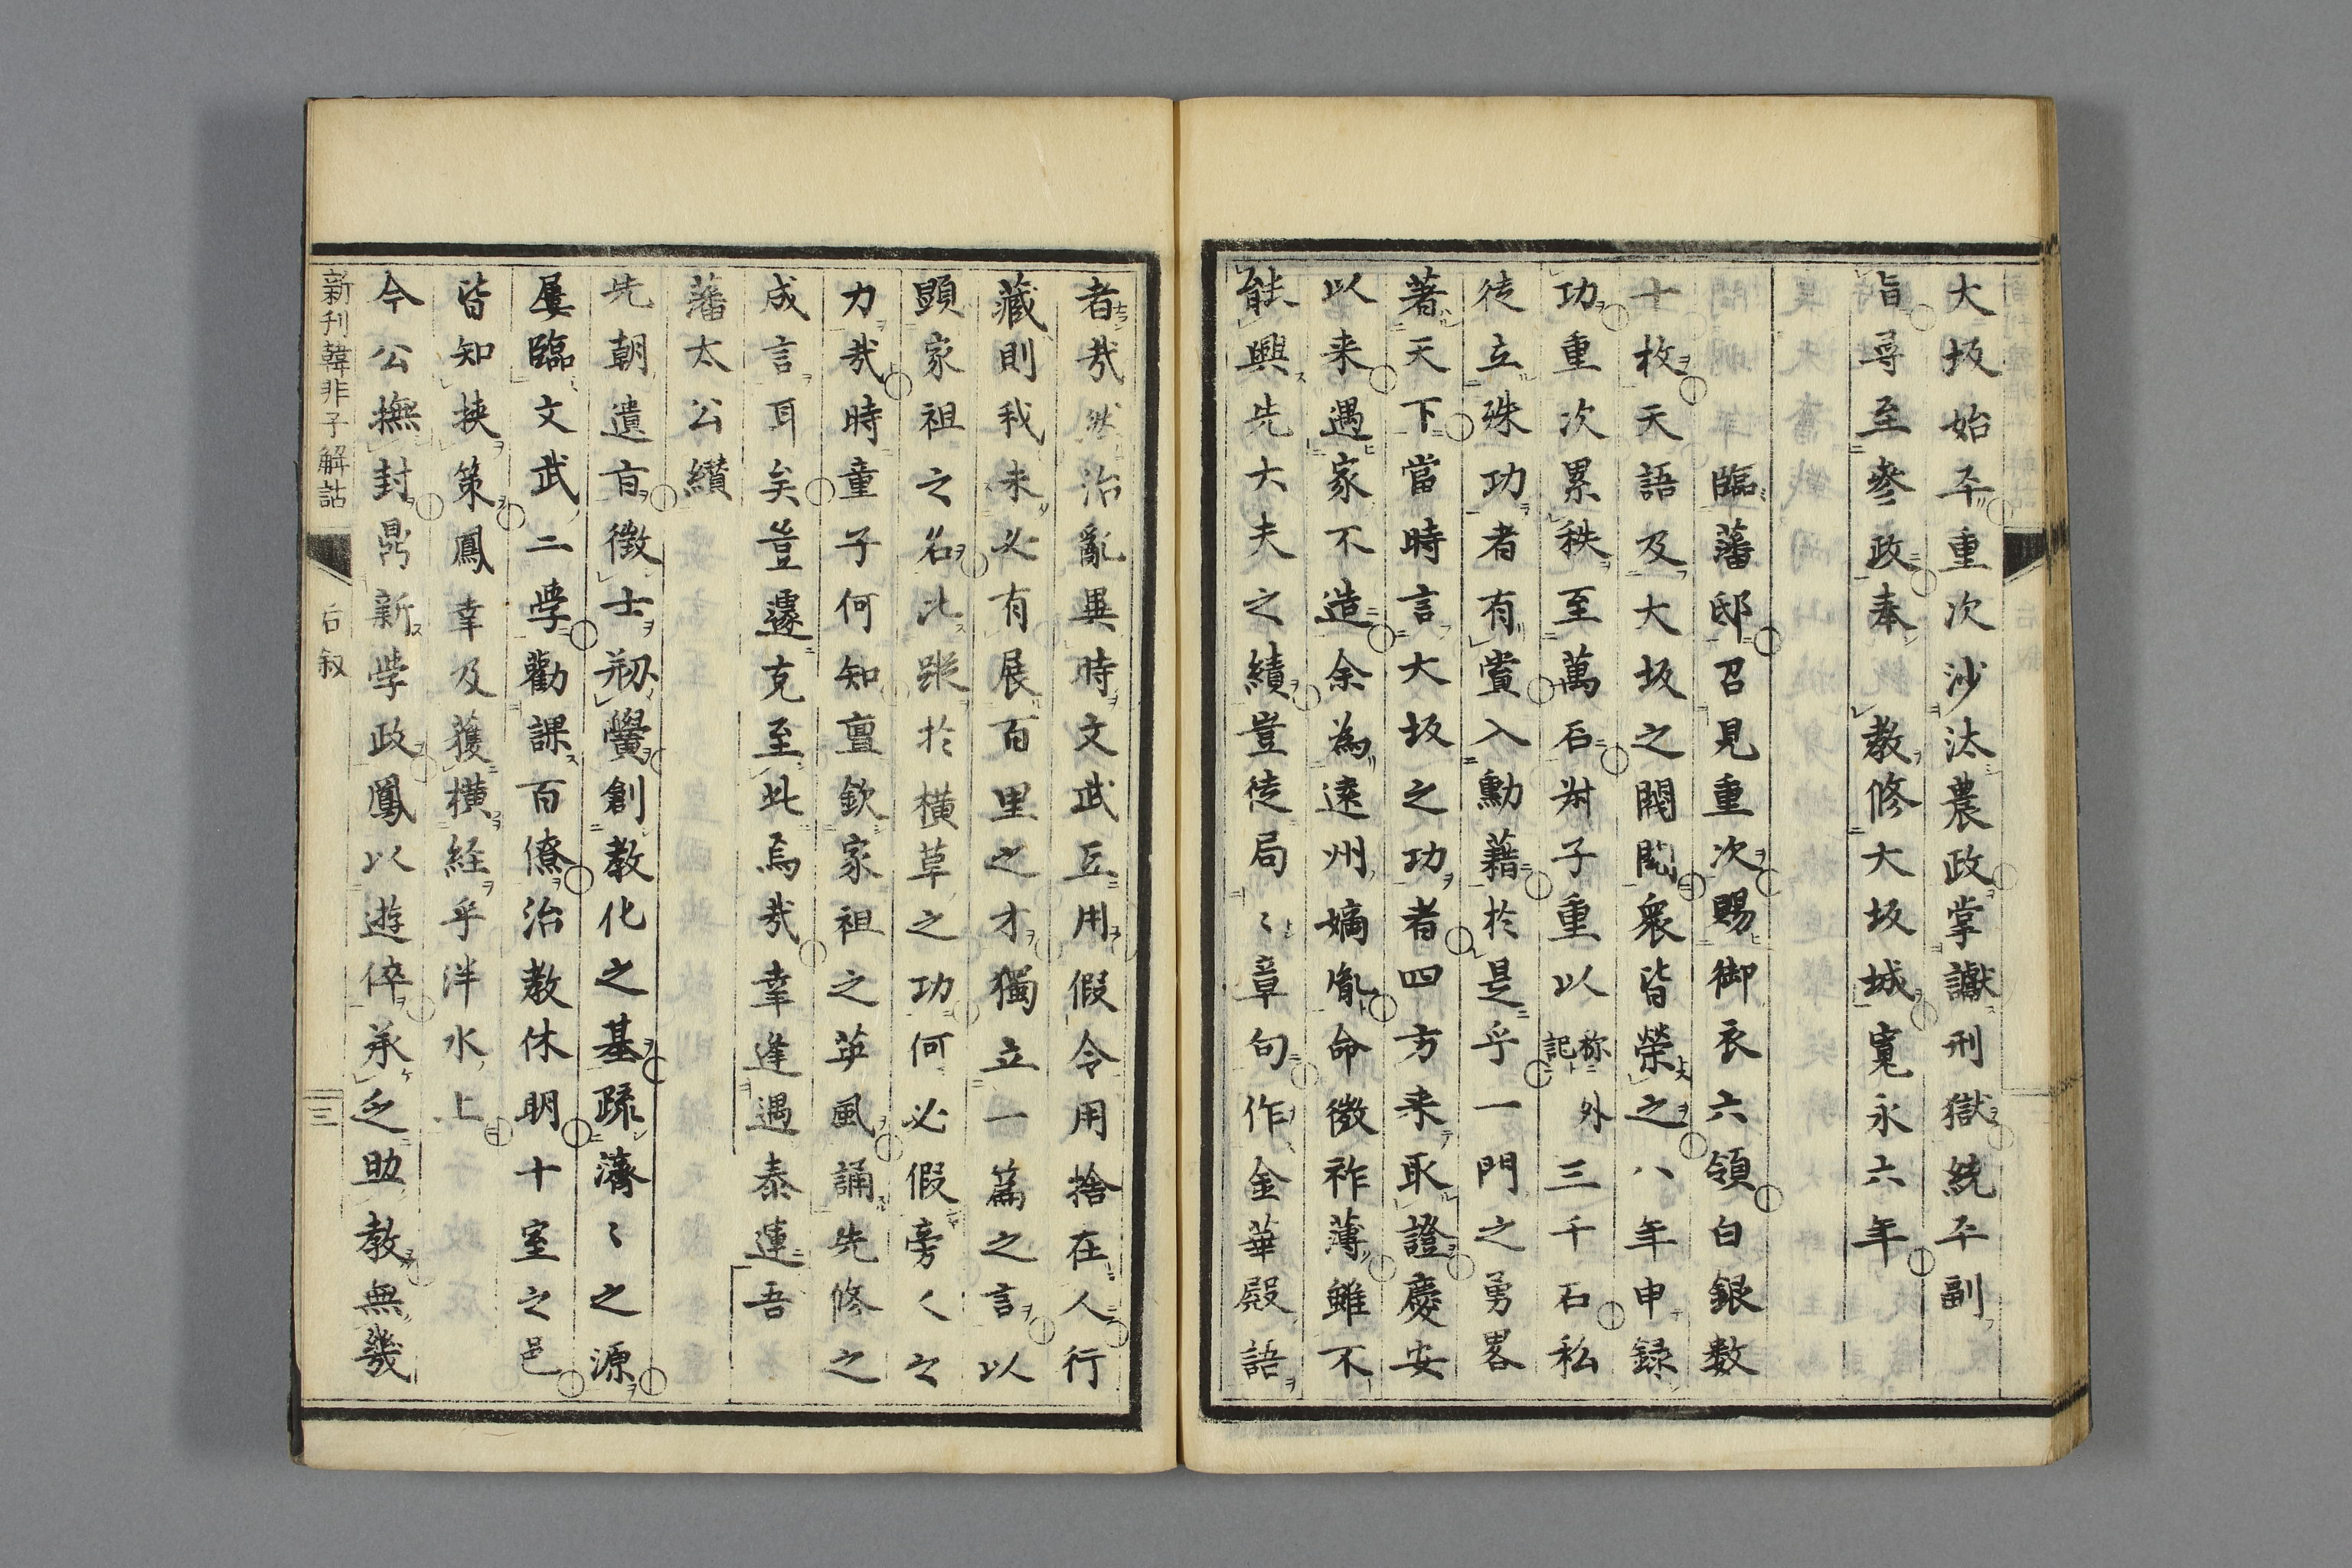 大坂始平重次沙汰農政掌讞刑獄統平副
旨尋至參政奉　教修大坂城寛永六年
臨藩邸召見重次賜御衣六領白銀数
十枚天語及大坂之閥閲衆皆榮之八年申録
功重次累秩至萬石姪子重以称外記三千石私
徒立殊功者有賞入勳藉於是乎一門之勇畧
著天下當時言大坂之功者四方来取證慶安
以来遇家不造余為遠州嫡胤命微祚薄雖不
能興先大夫之績豈徒局〻章句作金華殿語
者㢤然治亂異時文武互用假令用捨在人行
藏則我未必有展百里之才獨立一篇之言以
顕家祖之名比蹤於横草之功何必假旁人之
力㢤時童子何知亶欽家祖之英風誦先修之
成言耳矣豈遽克至此焉㢤幸逢遇泰運吾
藩太公纉
先朝遺㫖徴士剏黌創教化之基疏濟〻之源
屡臨文武二學勸課百僚治教休明十室之邑
皆知挟策鳳幸及獲横経乎泮水上
今公撫封鼎新學政鳳以遊倅承乏助教無幾
新刊韓非子解詁　后叙　三